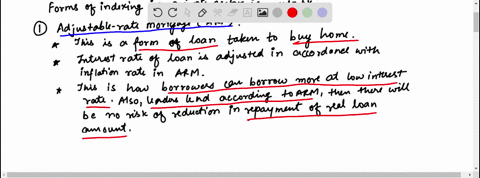 Forms of indexing
① Adjustable-rate mortgage
* This is a form of loan taken to buy home.
* Interest rate of loan is adjusted in accordance with
inflation rate in ARM.
* This is how borrowers can borrow more at low interest
rate. Also, lenders lend according to ARM, then there will
be no risk of reduction in repayment of real loan
amount.